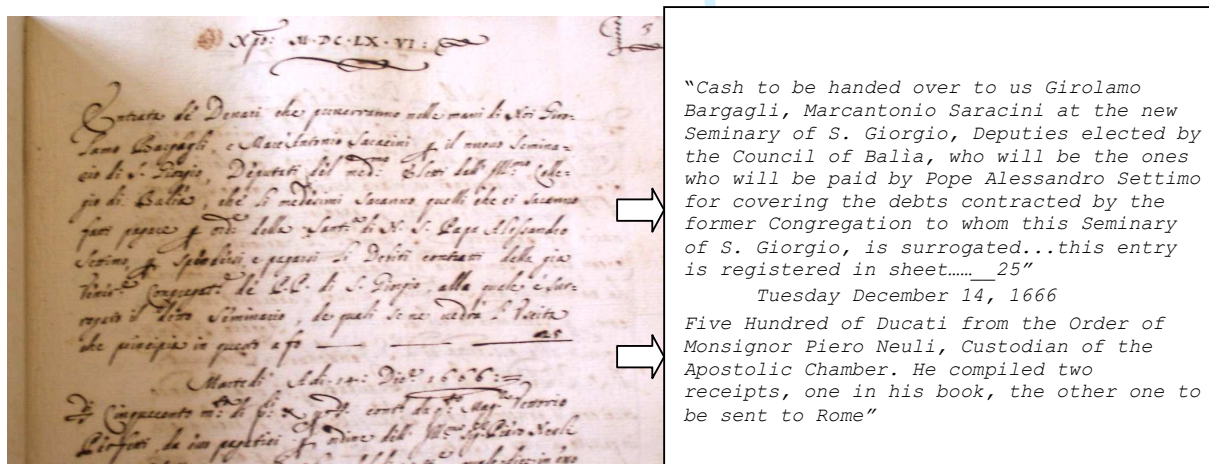 Xpo: M·DC·LX·VI:
Entrata de Denari che perverranno nelle mani di Noi Giro-
lamo Bargagli, e Marc'Antonio Saracini il nuovo Semina-
rio di S. Giorgio, Deputati del med:mo Eletti dall' Ill:mo Colle-
gio di Balìa, che li medesimi saranno quelli che ci saranno
fatti pagare ord: della Sant:tà di N. S. Papa Alessandro
Settimo, spendersi e pagarsi li Debiti contratti dalla già
Congregat: de P.P. di S. Giorgio, alla quale è sur-
rogato il detto Seminario, de quali se ne vedrà l'Uscita
che principia in questo a fo 25
Martedì Adi 14: Dic: 1666:
Cinquecento di da
da ordine dell' Ill:mo Piero Neuli
“Cash to be handed over to us Girolamo
Bargagli, Marcantonio Saracini at the new
Seminary of S. Giorgio, Deputies elected by
the Council of Balìa, who will be the ones
who will be paid by Pope Alessandro Settimo
for covering the debts contracted by the
former Congregation to whom this Seminary
of S. Giorgio, is surrogated...this entry
is registered in sheet……__25”
Tuesday December 14, 1666
Five Hundred of Ducati from the Order of
Monsignor Piero Neuli, Custodian of the
Apostolic Chamber. He compiled two
receipts, one in his book, the other one to
be sent to Rome”